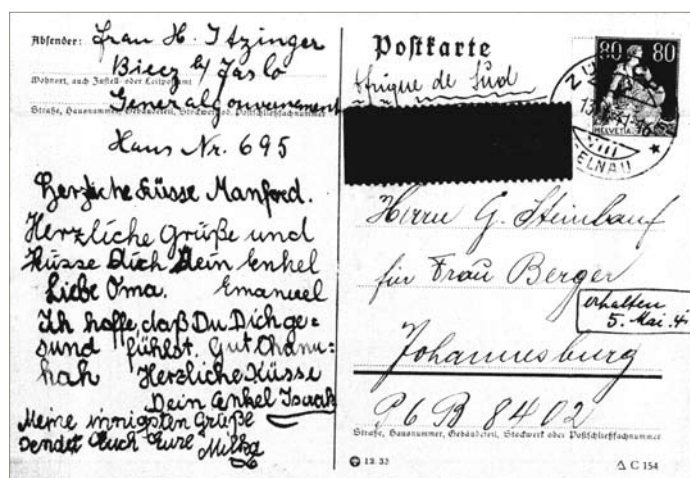 Absender: Frau H. Itzinger
Biecz b/ Jaslo
Wohnort, auch Zustell- oder Leitpostamt
Generalgouvernement
Straße, Hausnummer, Gebäudeteil, Stockwerk od. Postschließfachnummer
Haus Nr. 695
Herzliche Küsse Manfred.
Herzliche Grüße und
Küsse Dich Dein Enkel
Liebe Oma. Emanuel
Ich hoffe, daß Du Dich ge=
sund fühlst. Gut Chanu=
kah Herzliche Küsse
Dein Enkel Isaak
Meine innigsten Grüße
sendet Euch Eure Milka
Postkarte
Afrique de Sud
80 80
HELVETIA
VIII
ELNAU
Herrn G. Steinbauf
für Frau Berger
erhalten
5. Mai. 4
Johannesburg
P 6 B 8402
Straße, Hausnummer, Gebäudeteil, Stockwerk oder Postschließfachnummer
12.35
C 154